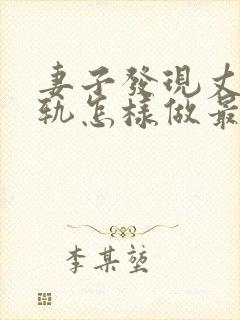 妻子發現丈
軌怎樣做最
李某堃